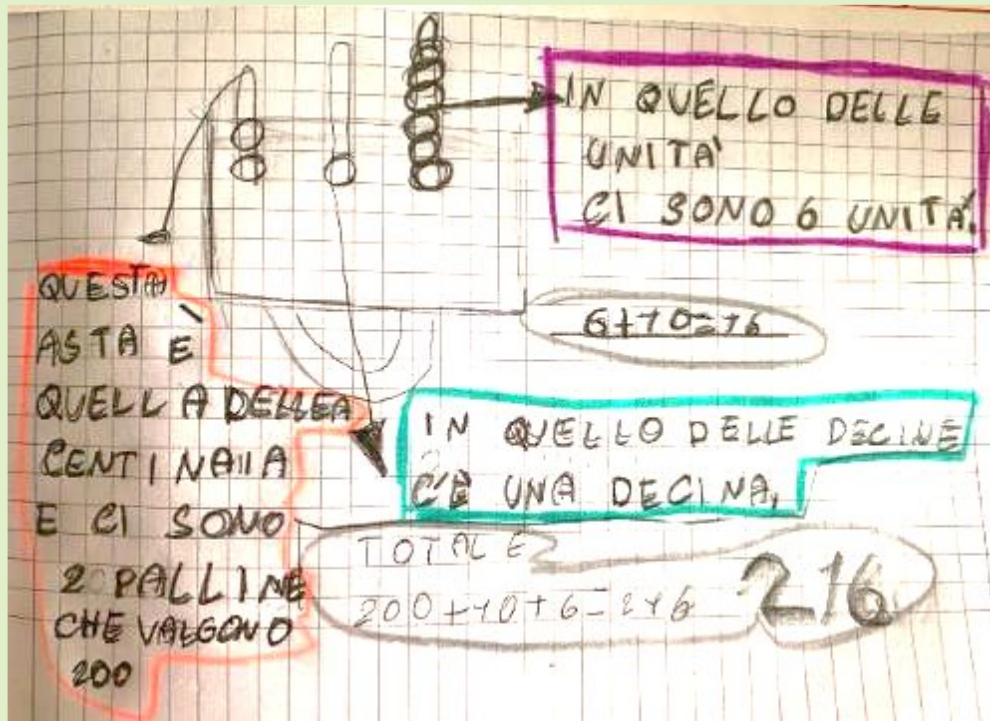 IN QUELLO DELLE
UNITA'
CI SONO 6 UNITÀ.
6+10=16
QUESTA
ASTA È
QUELLA DELLEA
CENTINAIIA
E CI SONO
2 PALLINE
CHE VALGONO
200
IN QUELLO DELLE DECINE
C'È UNA DECINA,
TOTALE
200+10+6=216 216